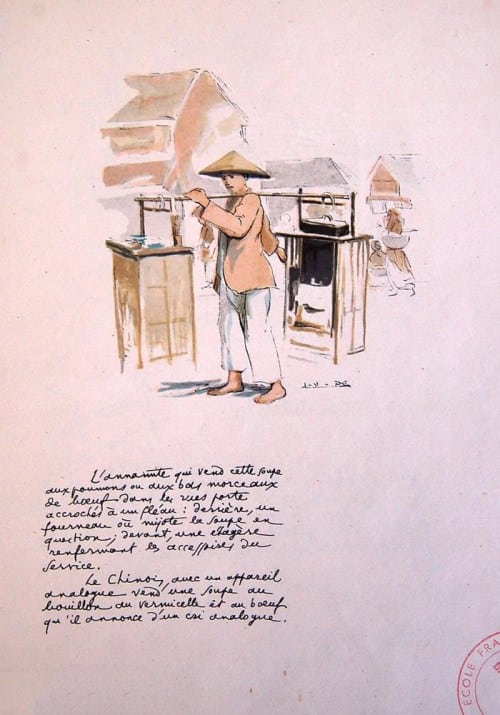 L'annamite qui vend cette soupe
aux poumons ou aux bas morceaux
de bœuf dans les rues porte
accrochés à un fléau : derrière, un
fourneau où mijote la soupe en
question, devant, une étagère
renfermant les accessoires du
service.
Le Chinois, avec un appareil
analogue vend une soupe au
bouillon au vermicelle et au bœuf
qu'il annonce d'un cri analogue.
ECOLE FRA